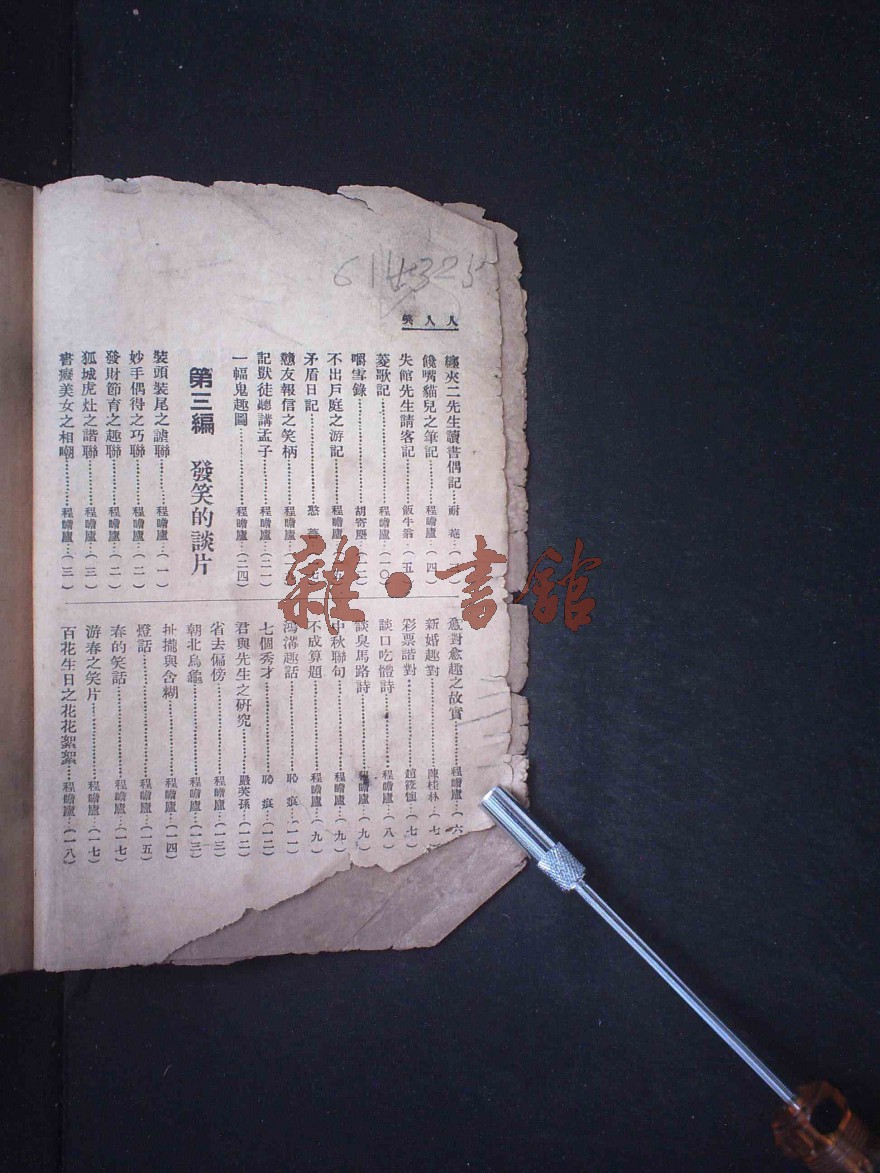 人人笑
纏夾二先生讀書偶記……耐 菴…(
饞嘴貓兒之筆記……程瞻廬…(四)
失館先生請客記……飯牛翁…(五)
菱歌記……程瞻廬…(一〇)
嚼雪錄……胡寄塵
不出戶庭之游記……程瞻廬
矛盾日記……憨
戇友報信之笑柄……程瞻廬
記獃徒聽講孟子……程瞻廬…(二一)
一幅鬼趣圖……程瞻廬…(二四)
第三編 發笑的談片
裝頭裝尾之謔聯……程瞻廬…(一)
妙手偶得之巧聯……程瞻廬…(二)
發財節育之趣聯……程瞻廬…(二)
狐城虎灶之諧聯……程瞻廬…(三)
書癡美女之相嘲……程瞻廬…(三)
愈對愈趣之故實……程瞻廬…(六
新婚趣對……陳桂林…(七)
彩票諧對……趙筱儂…(七)
談口吃體詩……程瞻廬…(八)
談臭馬路詩……程瞻廬…(九)
中秋聯句……程瞻廬…(九)
不成算題……程瞻廬…(九)
鴻溝趣話……恥 痕…(一一)
七個秀才……恥 痕…(一二)
君與先生之研究……嚴英孫…(一二)
省去偏傍……程瞻廬…(一三)
朝北烏龜……程瞻廬…(一三)
扯攏與含糊……程瞻廬…(一四)
燈話……程瞻廬…(一五)
春的笑話……程瞻廬…(一七)
游春之笑片……程瞻廬…(一七)
百花生日之花花絮絮……程瞻廬…(一八)
雜·書館